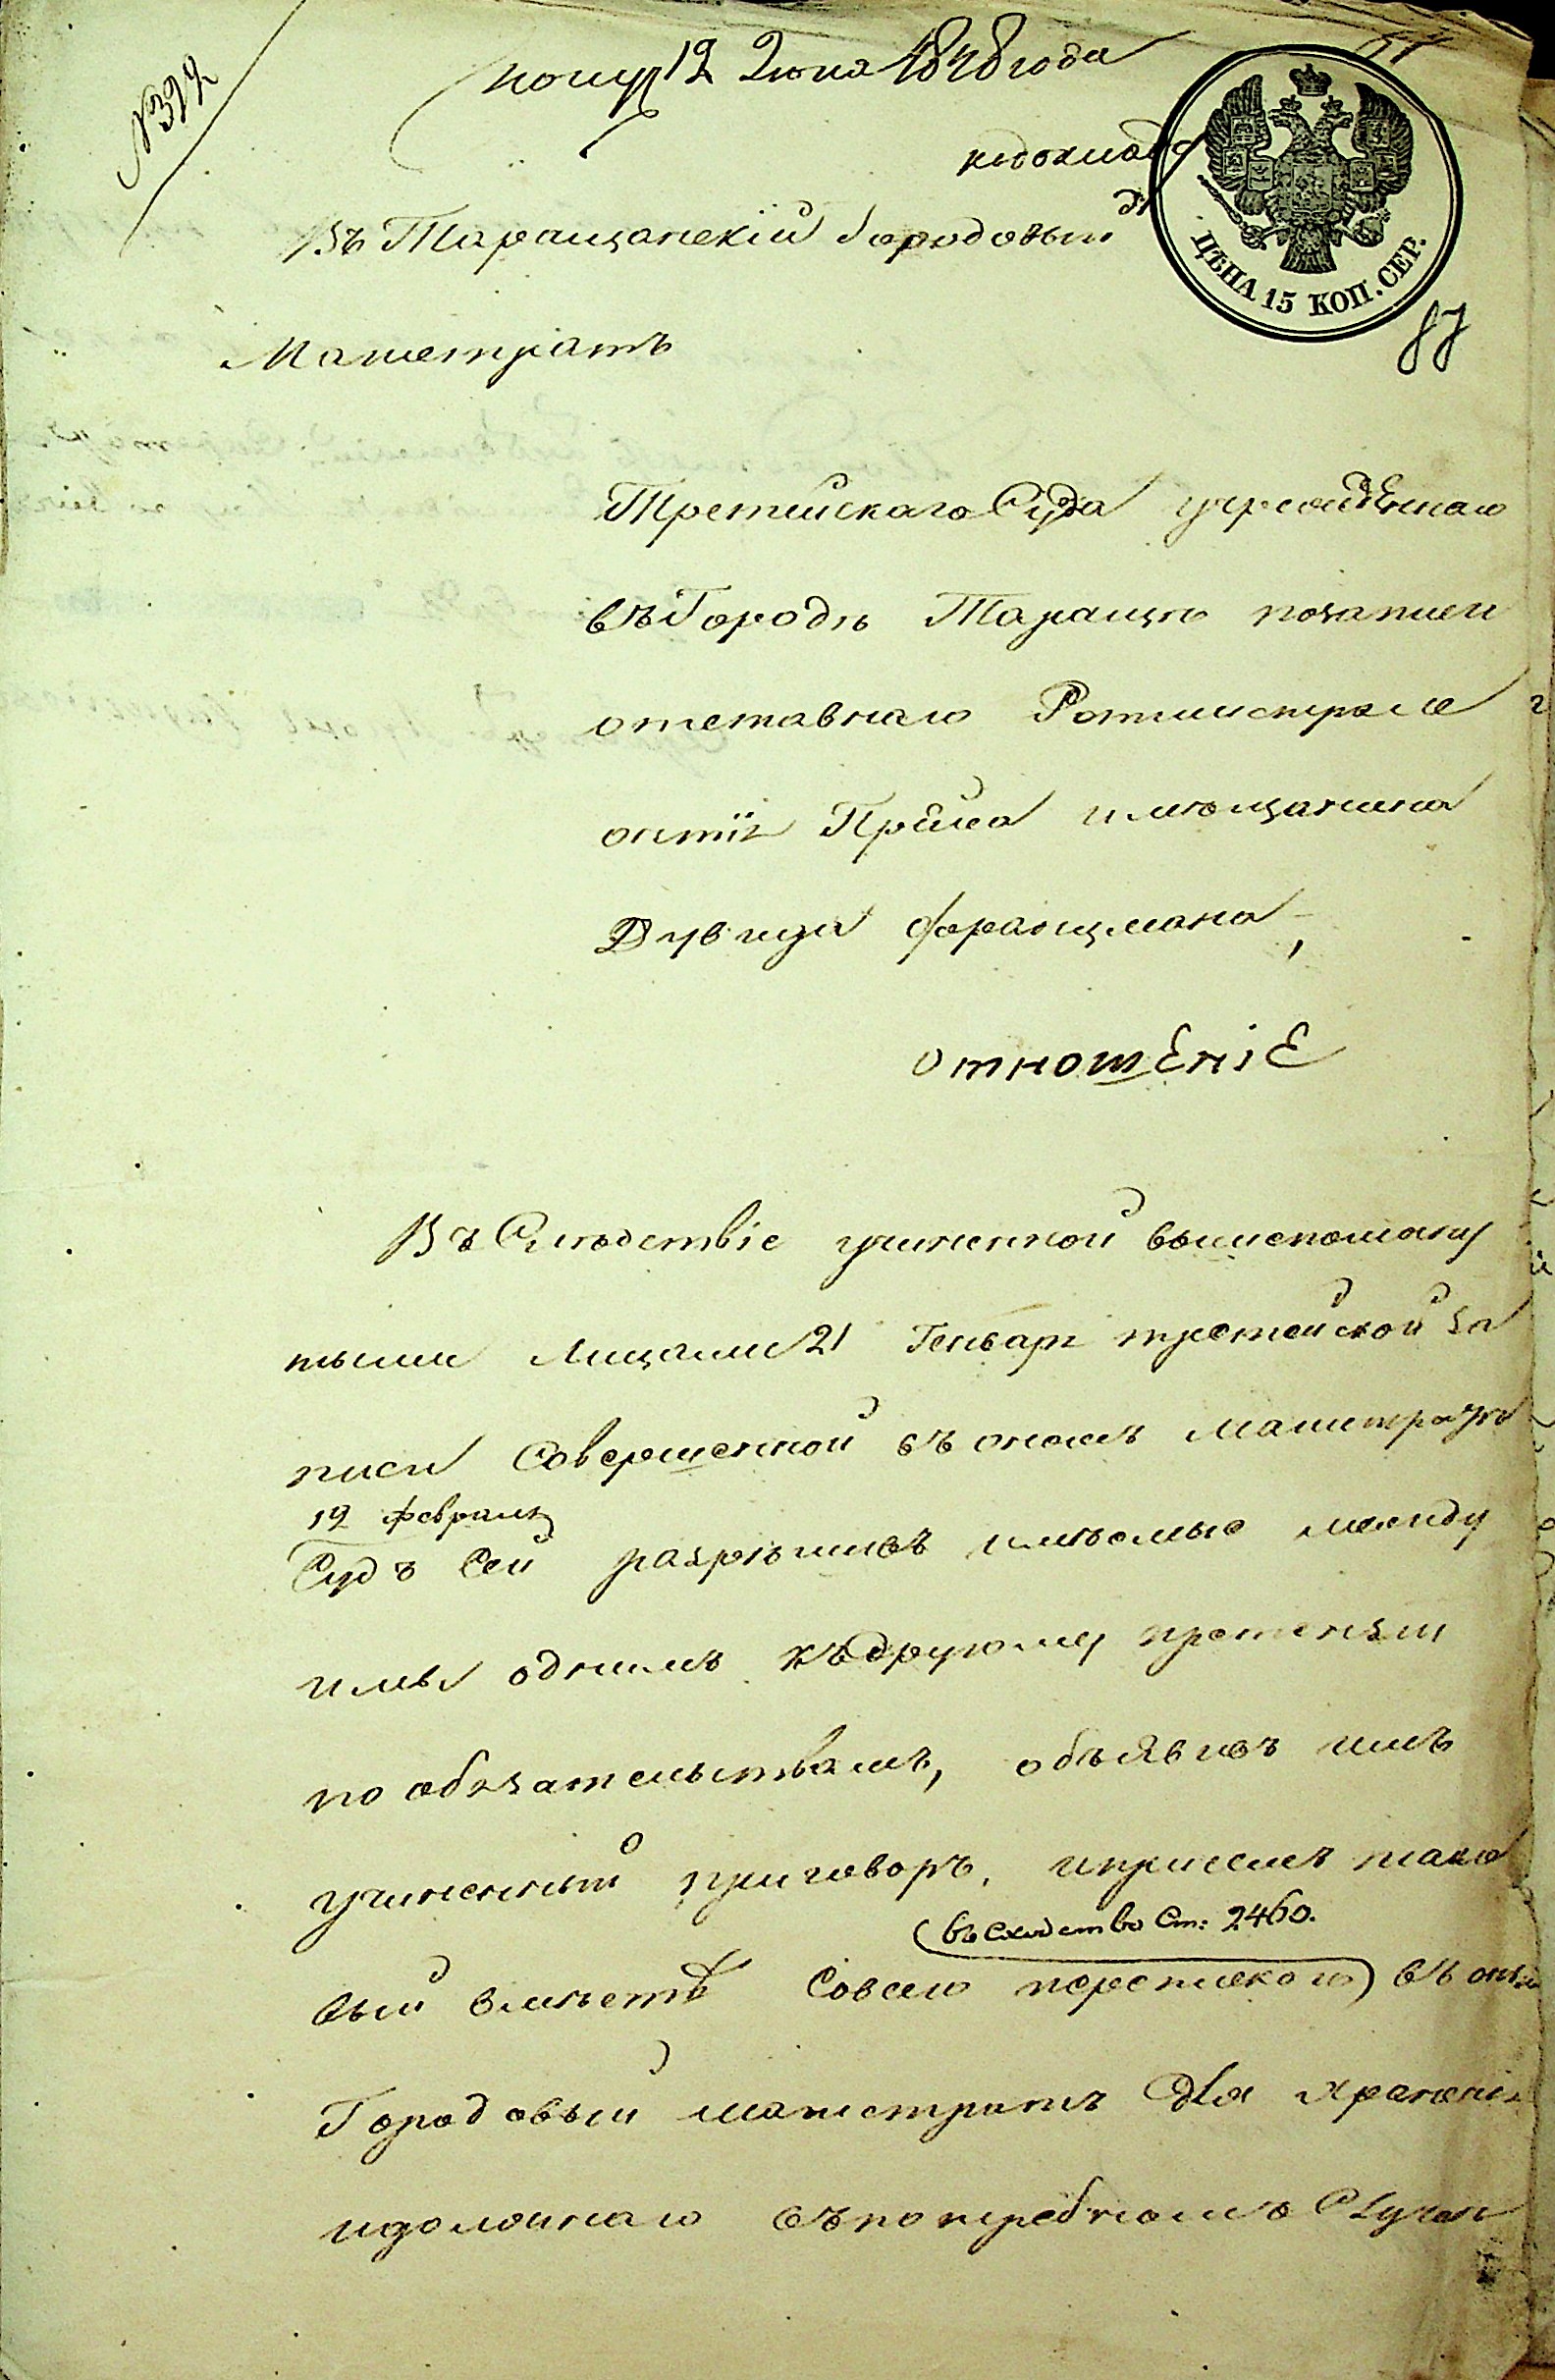 № 392
получ 12 Июня 1848 года
къ докладу
Въ Таращанскій Городовый
ЦѢНА 15 КОП. СЕР.
Магистратъ
87
Третейскаго Суда учрежденнаго
въ Городѣ Таращѣ по записи
отставнаго Ротмистра Ле
онтія Прайса и мѣщанина
Дувида Франимана,
отношеніе
Въ Слѣдствіе учиненной вышепомяну
тыми Лицами 21 Генваря третейской за
писи Совершенной въ ономъ магистратѣ
12 февраля
Судъ Сей разрѣшивъ имѣемые между
ими однимъ къ другому претензіи
по обязательствамъ, объявивъ имъ
учиненный приговоръ, и при семъ тако
(въ сходство Ст: 2460.
вый вмѣстѣ Со всею перепискою) въ оный
Городовый магистратъ Для храненія
и должнаго въ потребномъ Случаи